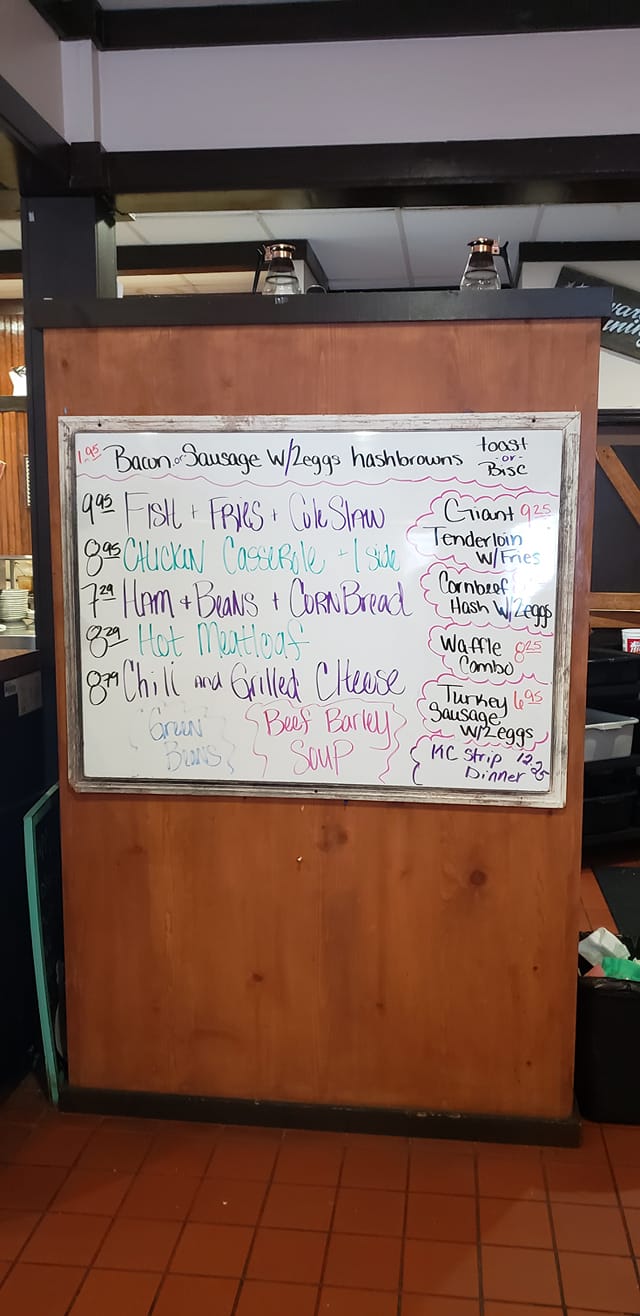 1.95 Bacon or Sausage W/2eggs hashbrowns toast
-or-
Bisc
9.95 FISH + FRIES + Cole Slaw
8.95 CHICKEN CASSEROLE + 1 side
7.29 HAM + BEANS + CORN BREAD
8.29 Hot Meatloaf
8.79 Chili AND Grilled CHeese
Green
Beans
Beef Barley
Soup
Giant 9.25
Tenderloin
W/Fries
Cornbeef
Hash W/2eggs
Waffle 8.25
Combo
Turkey 6.95
Sausage
W/2eggs
KC Strip 12.25
Dinner